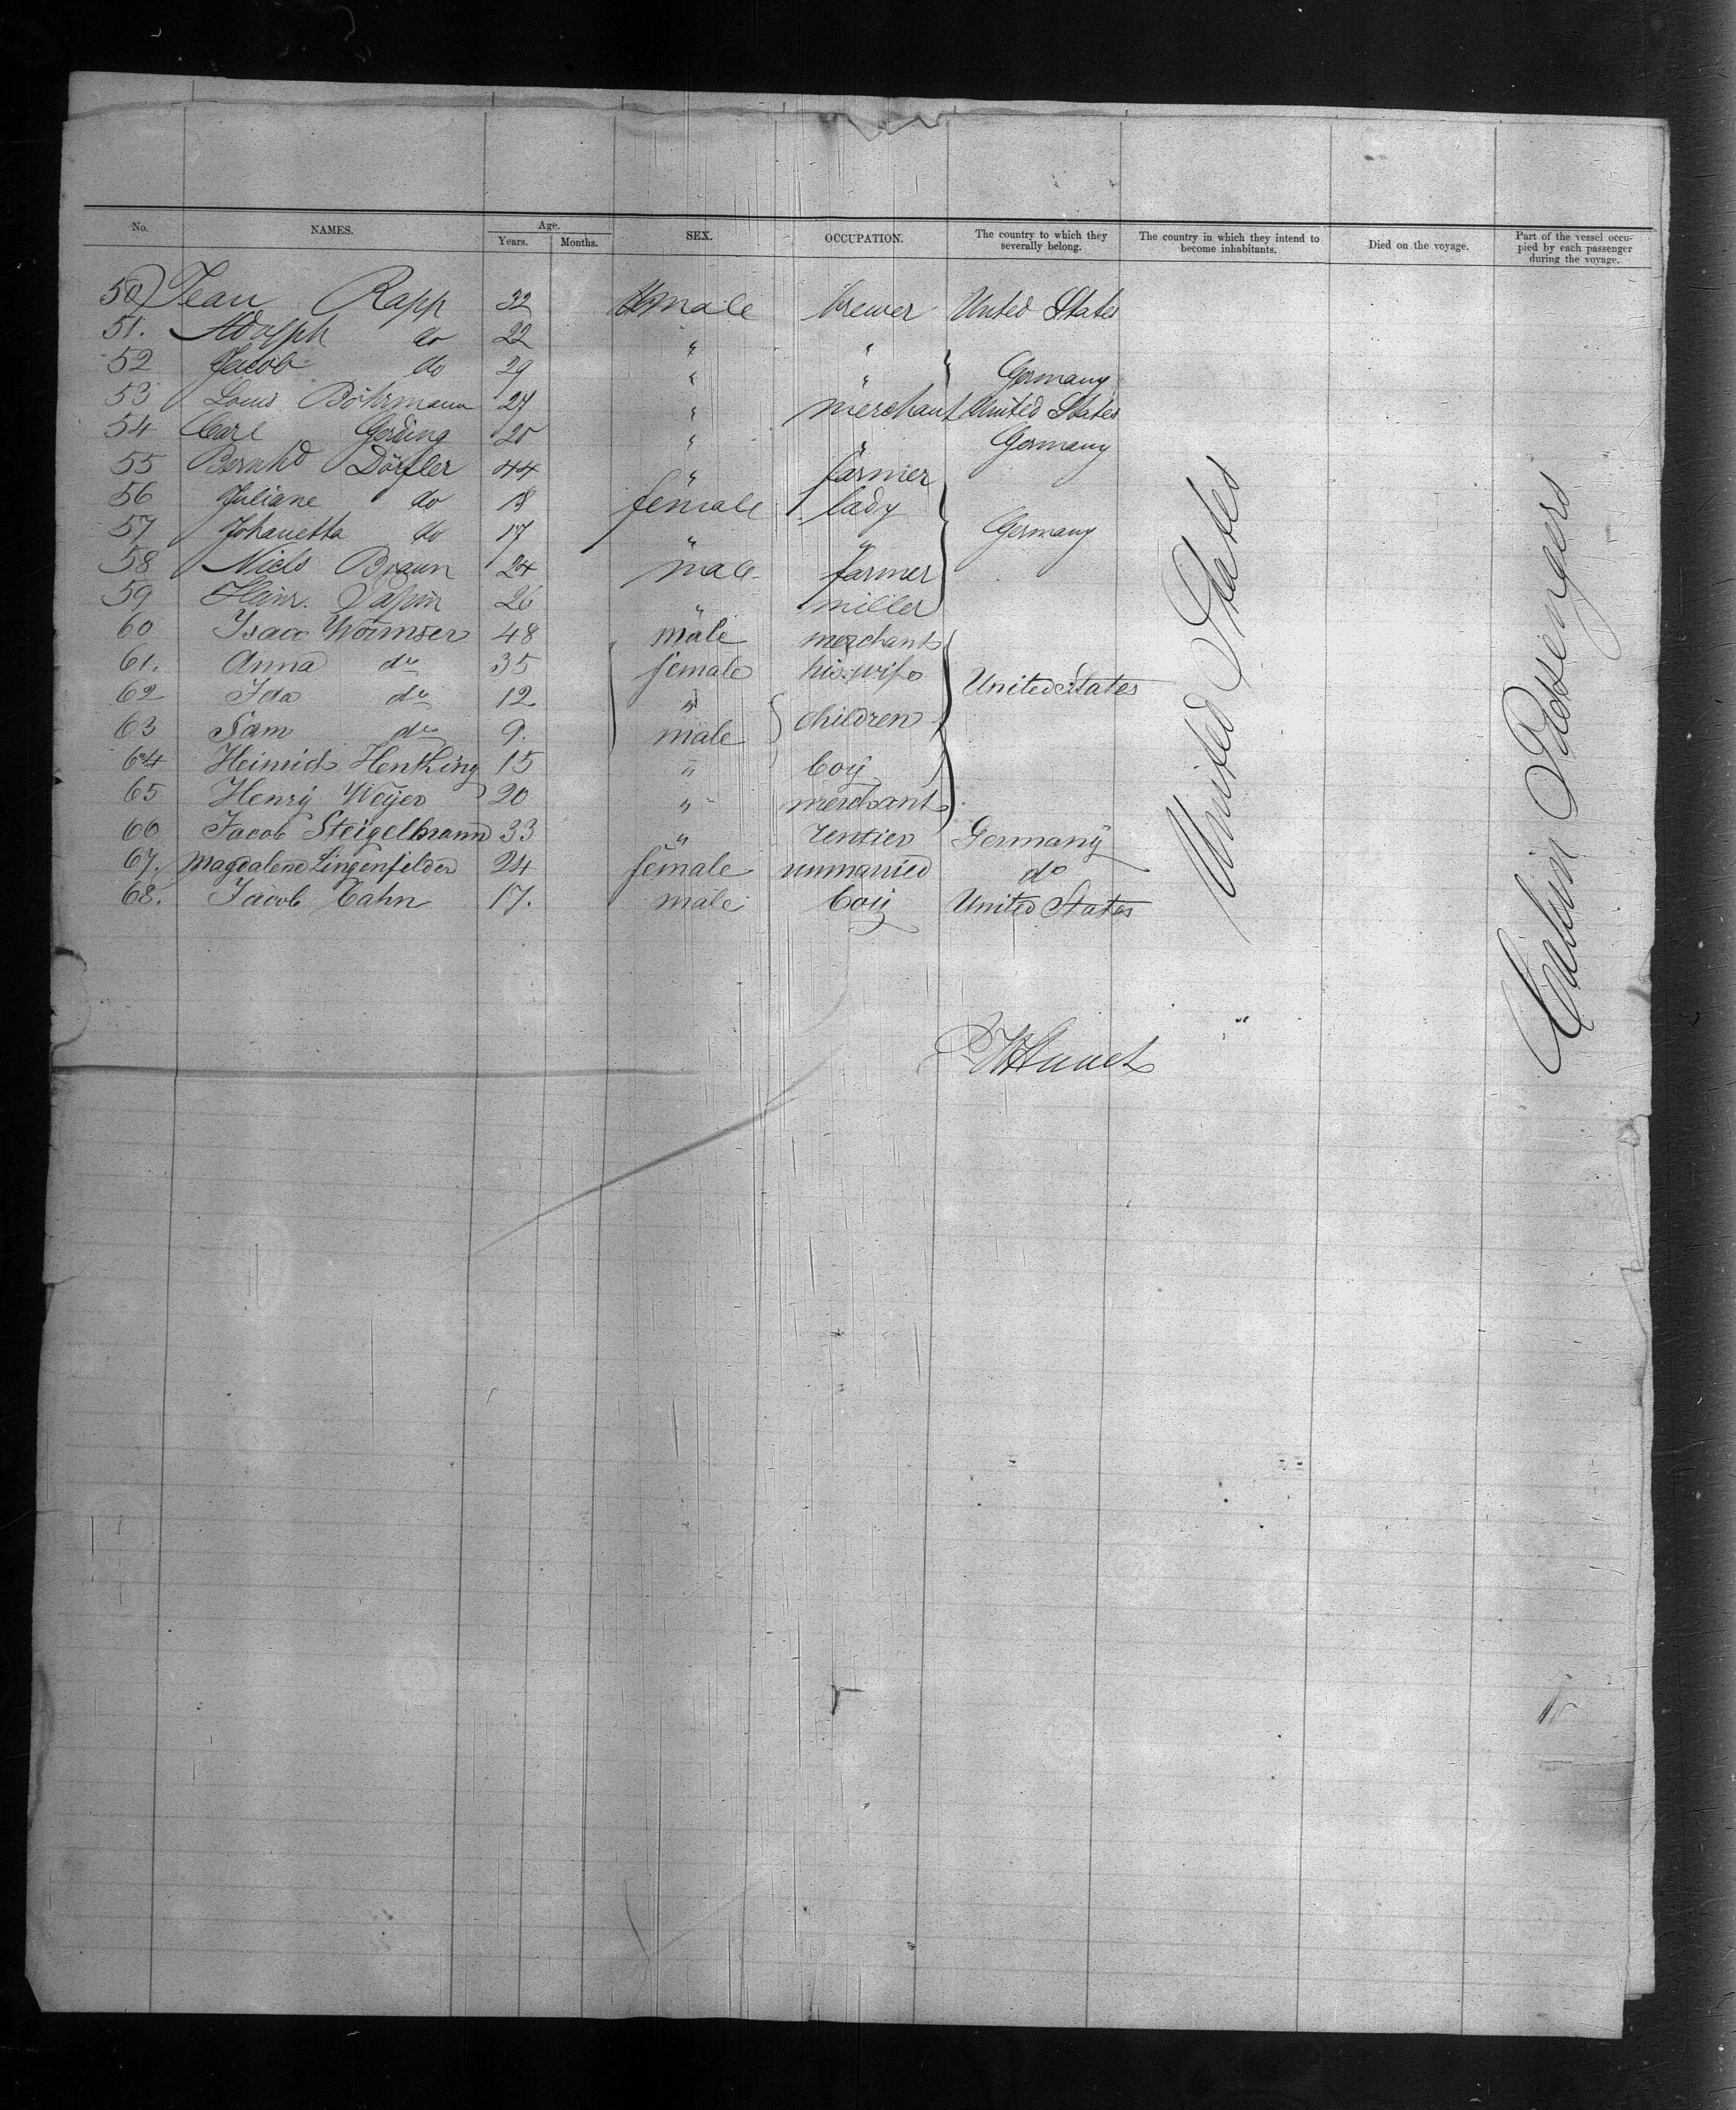 No. NAMES. Age. Years. Months. SEX. OCCUPATION. The country to which they severally belong. The country in which they intend to become inhabitants. Died on the voyage. Part of the vessel occupied by each passenger during the voyage.
50 Jean Rapp 32 male brewer United States
51. Adolph do 22 " "
52 Jacob do 29 " " Germany
53 Louis Böhrmann 27 " merchant United States
54 Carl Gerding 20 " " Germany
55 Bernhd Dörfler 44 " farmer
56 Juliane do 18 female lady
57 Johanetta do 17 " " Germany
58 Niels Braun 24 male farmer
59 Heinr. 26 " miller
60 Isaac Wormser 48 male merchant
61. Anna do 35 female his wife United States
62 Ida do 12 " children
63 Sam do 9. male
64 Heinrich Henking 15 " boy
65 Henry Weyer 20 " merchant
66 Jacob Steigelmann 33 " rentier Germany
67. Magdalene Lingenfelder 24 female unmarried do
68. Jacob Cahn 17. male boy United States
United States
Cabin Passengers